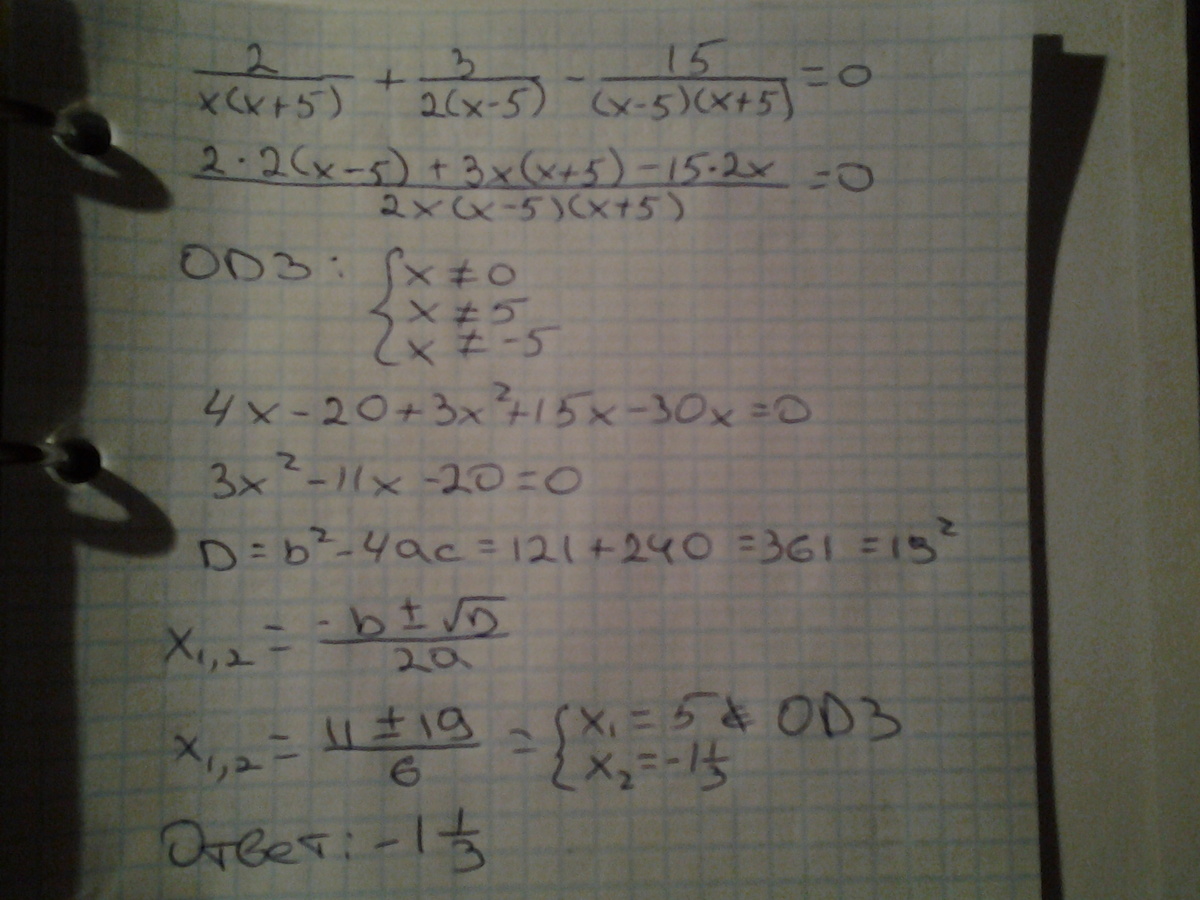 2/(x(x+5)) + 3/(2(x-5)) - 15/((x-5)(x+5)) = 0
(2·2(x-5) + 3x(x+5) - 15·2x)/(2x(x-5)(x+5)) = 0
ОДЗ: { x ≠ 0
x ≠ 5
x ≠ -5
4x - 20 + 3x² + 15x - 30x = 0
3x² - 11x - 20 = 0
D = b² - 4ac = 121 + 240 = 361 = 19²
x₁,₂ = (-b ± √D)/(2a)
x₁,₂ = (11 ± 19)/6 = { x₁ = 5 ∉ ОДЗ
x₂ = -1 1/3
Ответ: -1 1/3